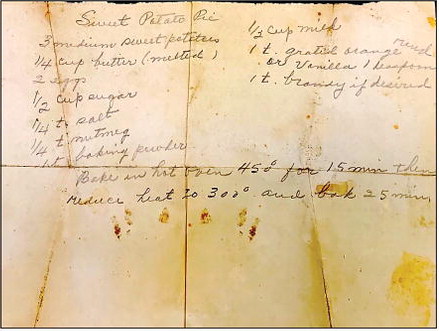 Sweet Potato Pie
3 medium sweet potatoes
1/4 cup butter (melted)
2 eggs
1/2 cup sugar
1/4 t. salt
1/4 t. nutmeg
1 t. baking powder
1/2 cup milk
1 t. grated orange rind
or Vanilla 1 teaspoon
1 t. brandy if desired
Bake in hot oven 450° for 15 min then
reduce heat to 300° and bak 25 min.